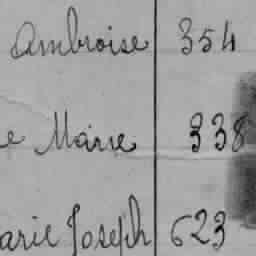 Ambroise 354
e Marie 338
arie Joseph 623